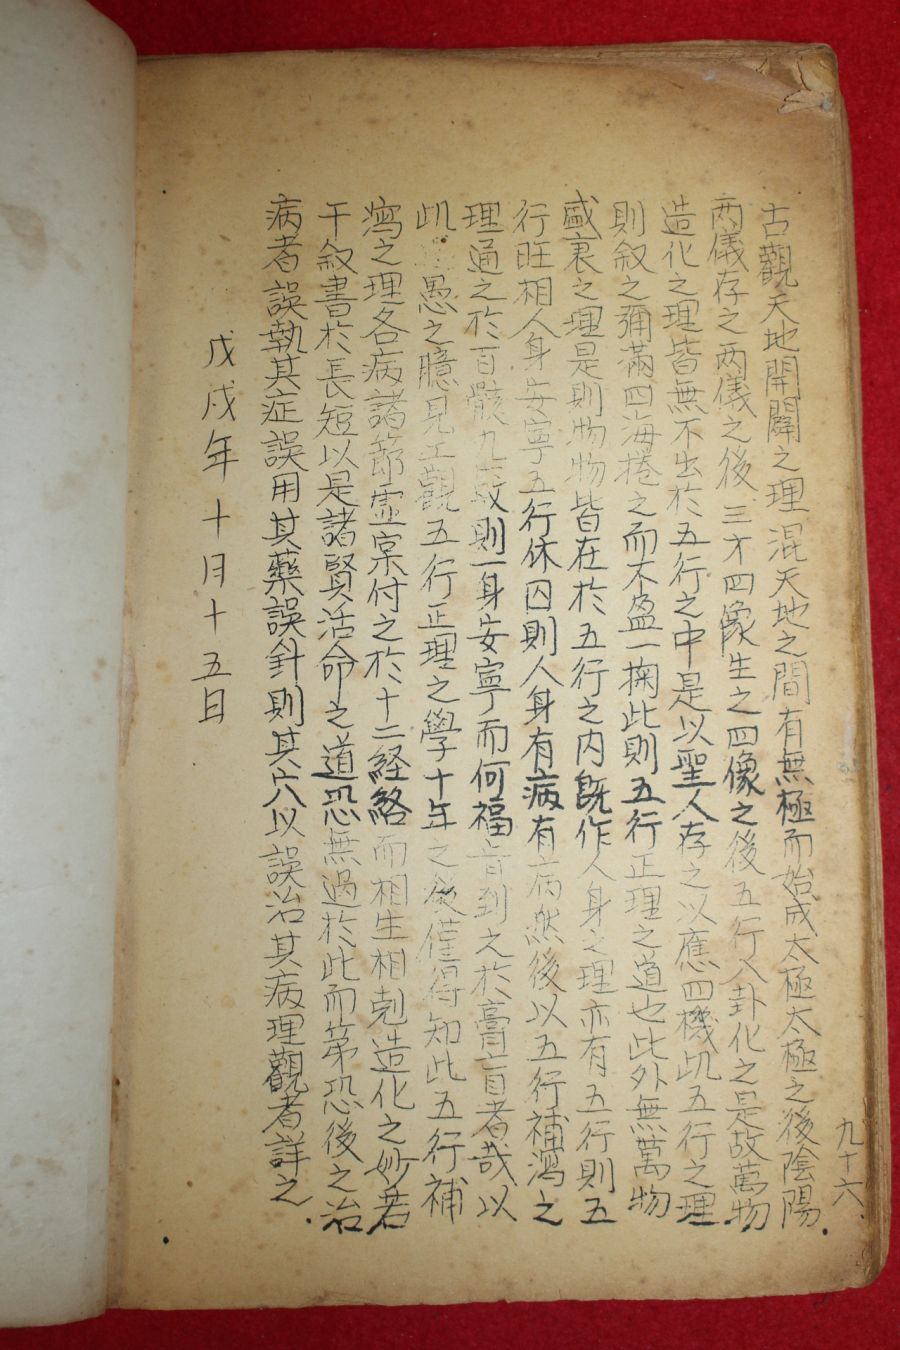 古觀天地開闢之理混天地之間有無極而始成太極太極之後陰陽
两儀存之两儀之後三才四象生之四像之後五行八卦化之是故萬物
造化之理皆無不出於五行之中是以聖人存之以應四機此五行之理
則叙之彌滿四海捲之而不盈一掬此則五行正理之道也此外無萬物
盛衰之理是則物物皆在於五行之内既作人身之理亦有五行則五
行旺相人身安寧五行休囚則人身有病有病然後以五行補瀉之
理通之於百骸九竅則一身安寧而何福 到之於膏肓者哉以
此 愚之臆見工觀五行正理之學十年之後僅得知此五行補
瀉之理各病諸節虛实付之於十二経絡而相生相剋造化之妙若
干叙書於長短以是諸賢活命之道恐無過於此而第恐後之治
病者誤執其症誤用其藥誤針則其穴以誤治其病理觀者詳之
戊戌年十月十五日
九十六